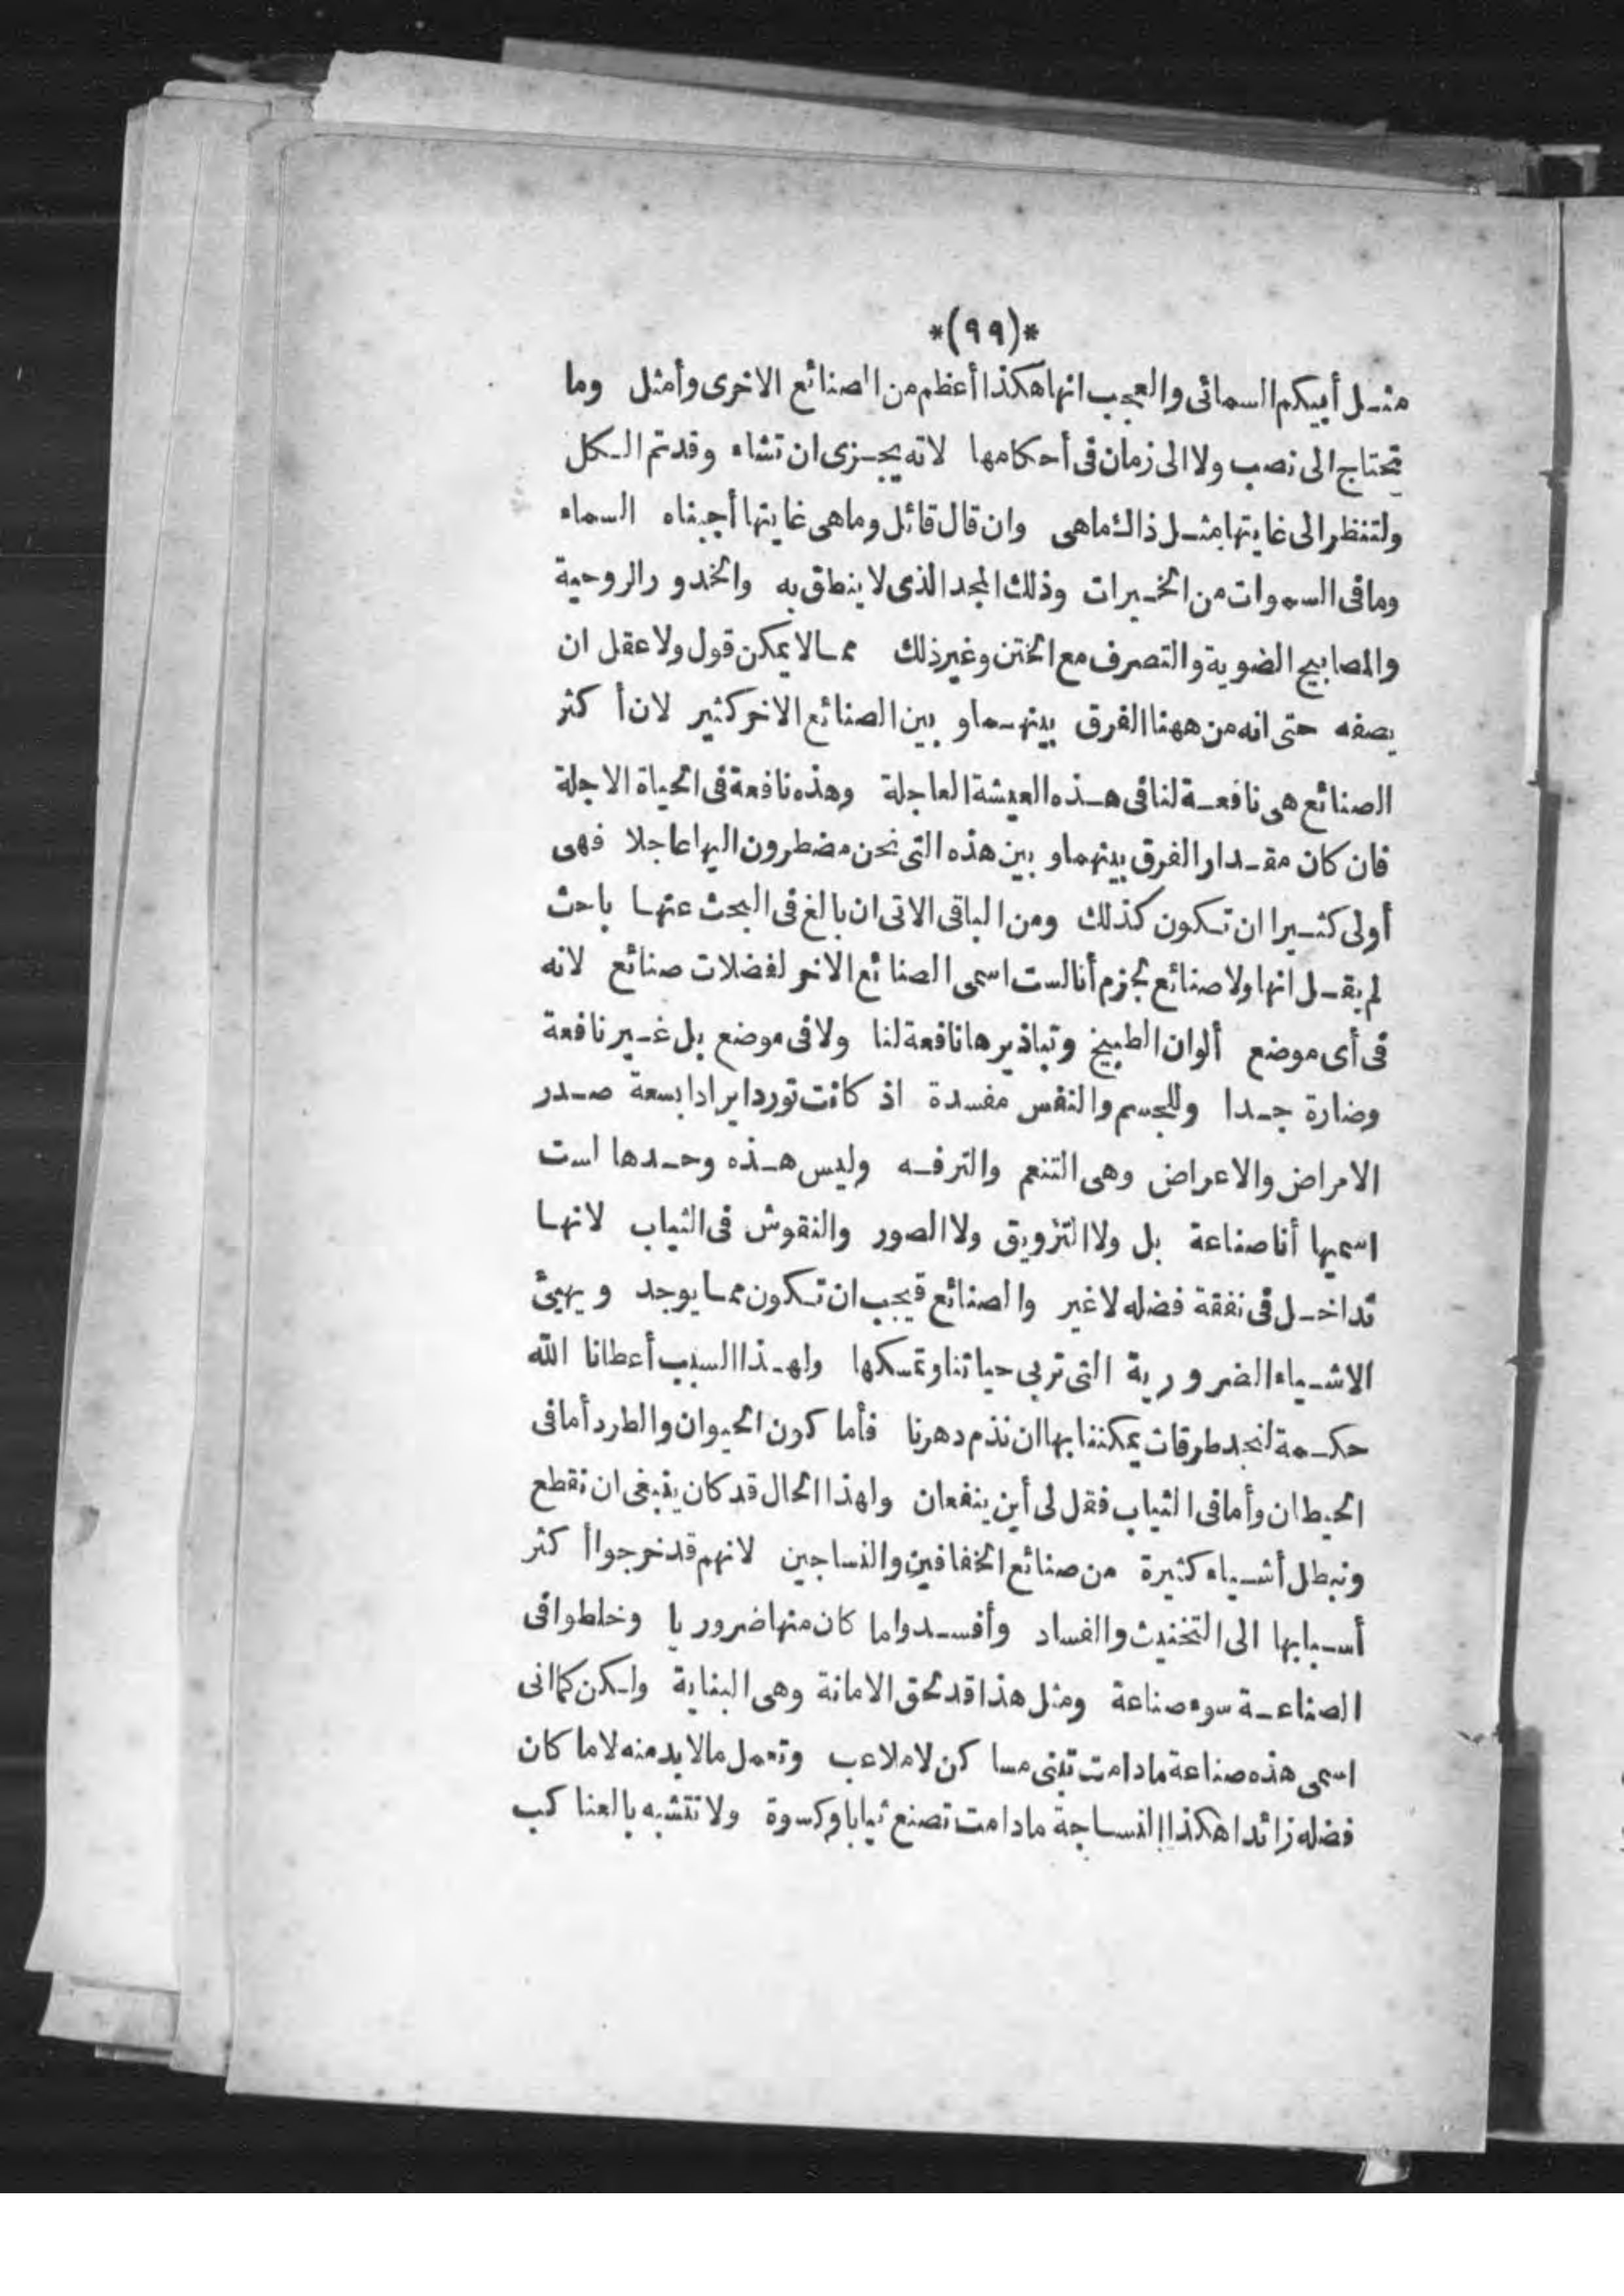 *(٩٩)*
مثل أبيكم السمائى والعجب انها هكذا أعظم من الصنائع الاخرى وأمثل وما
تحتاج الى نصب ولا الى زمان فى أحكامها لانه يجزى ان تشاء وقد تم الكل
ولتنظر الى غايتها مثل ذاك ماهى وان قال قائل وماهى غايتها أجبناه السماء
ومافى السموات من الخيرات وذلك المجد الذى لا ينطق به والخدور الروحية
والمصابيح الضوية والتصرف مع الختن وغير ذلك مما لا يمكن قول ولا عقل ان
يصفه حتى انه من ههنا الفرق بينهما و بين الصنائع الاخر كثير لان أكثر
الصنائع هى نافعة لنا فى هذه العيشة العاجلة وهذه نافعة فى الحياة الاجلة
فان كان مقدار الفرق بينهما و بين هذه التى نحن مضطرون اليها عاجلا فهى
أولى كثيرا ان تكون كذلك ومن الباقى الاتى ان بالغ فى البحث عنها باحث
لم يقل انها ولا صنائع نجزم أنا لست اسمى الصنائع الاخر لفضلات صنائع لانه
فى أى موضع ألوان الطبيخ وتباذيرها نافعة لنا ولا فى موضع بل غير نافعة
وضارة جدا وللجسم والنفس مفسدة اذ كانت تورد ايرادا بسعة صدر
الامراض والاعراض وهى التنعم والترفه وليس هذه وحدها لست
اسميها أنا صناعة بل ولا التزويق ولا الصور والنقوش فى الثياب لانها
تداخل فى نفقة فضله لاغير والصنائع فيجب ان تكون مما يوجد و يهيئ
الاشياء الضرورية التى تربى حياتنا وتمسكها ولهذا السبب أعطانا الله
حكمة لنجد طرقات يمكننا بها ان نذم دهرنا فأما كون الحيوان والطرد أما فى
الحيطان وأما فى الثياب فقل لى أين ينفعان ولهذا الحال قد كان ينبغى ان نقطع
ونبطل أشياء كثيرة من صنائع الخفافين والنساجين لانهم قد خرجوا أكثر
أسبابها الى التخنيث والفساد وأفسدوا ما كان منها ضروريا وخلطوا فى
الصناعة سوء صناعة ومثل هذا قد لحق الامانة وهى البناية ولكن كما انى
اسمى هذه صناعة مادامت تبنى مساكن لا ملاعب وتعمل مالابد منه لا ما كان
فضله زائدا هكذا النساجة مادامت تصنع ثيابا وكسوة ولا تتشبه بالعناكب